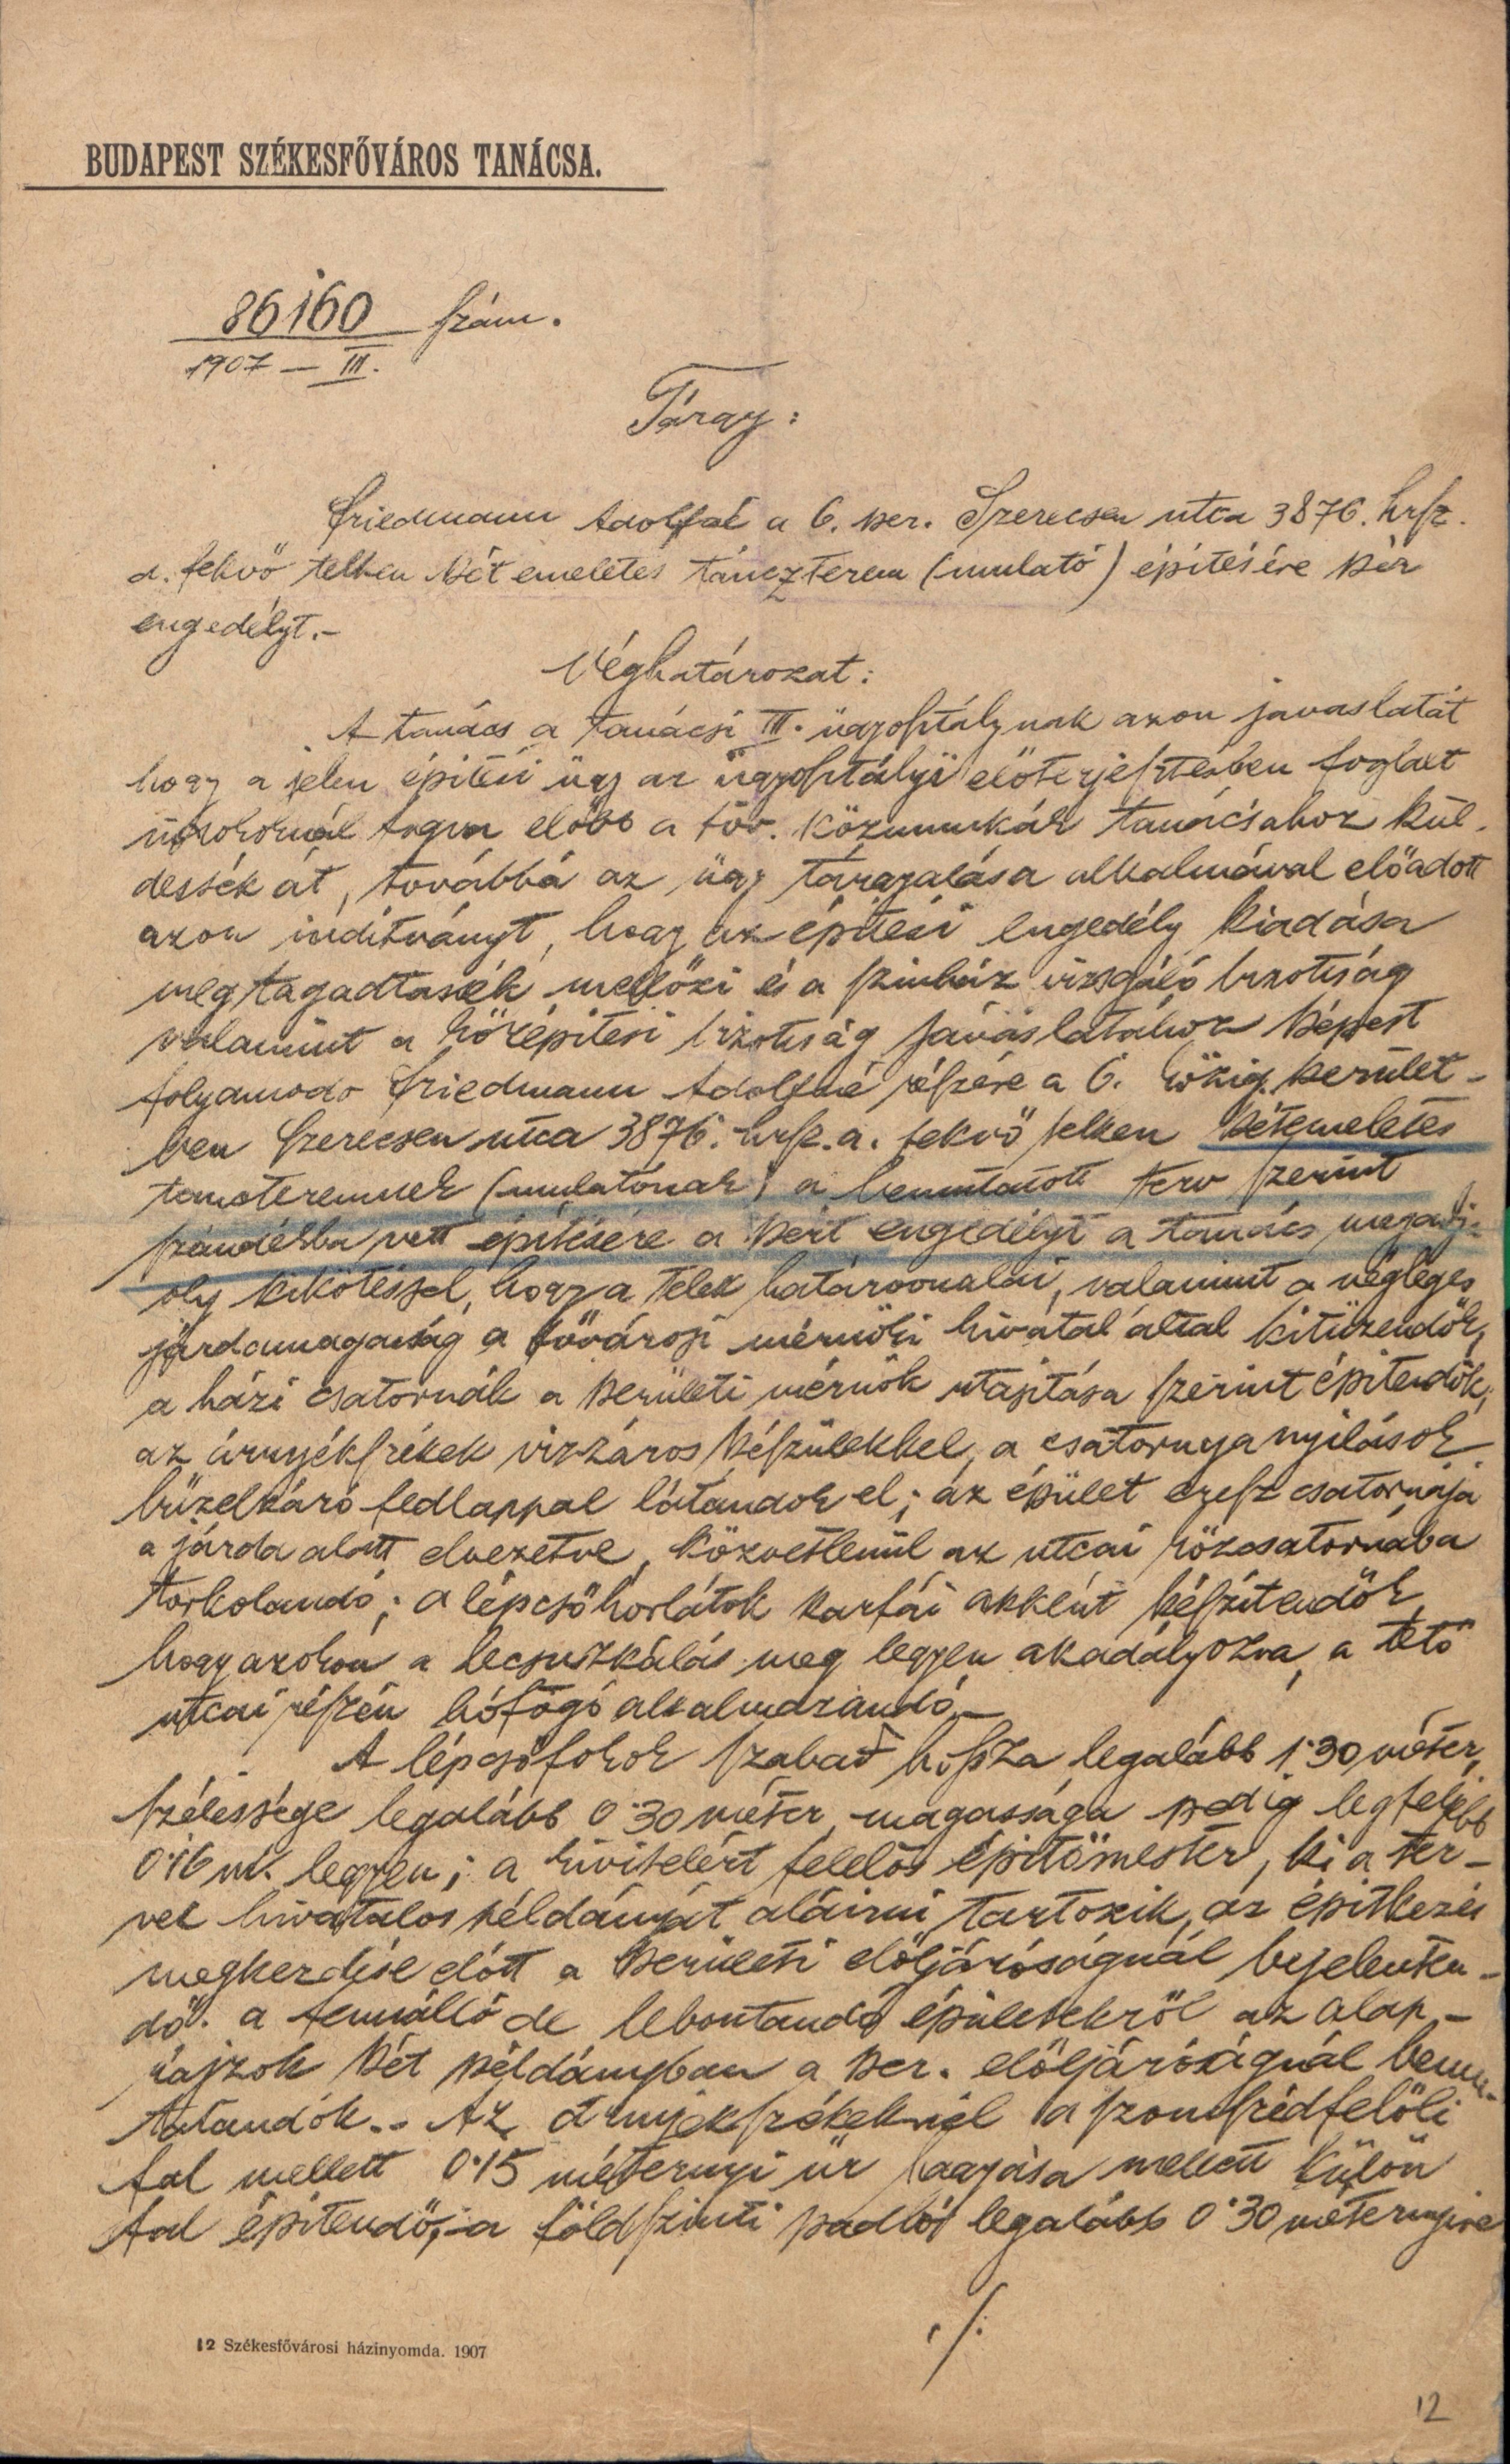 BUDAPEST SZÉKESFŐVÁROS TANÁCSA.
86160 szám.
1907 – III.
Tárgy:
Friedmann Adolfné a 6. ker. Szerecsen utca 3876. hrsz.
a. fekvő telken két emeletes táncz terem (mulató) épitésére kér
engedélyt.–
Véghatározat:
A tanács a tanácsi III. ügyosztálynak azon javaslatát
hogy a jelen épitési ügy az ügyosztályi előterjesztésben foglalt
indokoknál fogva előbb a föv. közmunkák tanácsahoz kül-
dessék át, továbbá az ügy tárgyalása alkalmával előadott
azon inditványt, hogy az épitési engedély kiadása
megtagadtassék mellőzi és a szinház vizsgáló bizottság
valamint a középitési bizottság javaslatához képest
folyamodo Friedmann Adolfné részére a 6. közig. kerület-
ben Szerecsen utca 3876. hrsz. a. fekvő telken kétemeletes
táncteremnek (mulatónak) a bemutatott terv szerint
szándékba vett épitésére a kért engedélyt a tanács megadja
oly kikötéssel, hogy a telek határvonalai, valamint a végleges
járdamagasság a fővárosi mérnöki hivatal által kitüzendők,
a házi csatornák a kerületi mérnök utasitása szerint épitendők;
az árnyékszékek vizzáros készülekkel, a csatornanyilások
büzelzáró fedlappal látandok el; az épület eresz csatornája
a járda alatt elvezetve, közvetlenül az utcai közcsatornába
torkolandó; a lépcsőkorlátok karfái akként készitendők
hogy azokon a lecsuszkálás meg legyen akadályozva, a tető
utcai részén hófogó alkalmazandó.–
A lépcsőfokok szabad hossza legalább 1·30 méter,
szélessége legalább 0·30 méter, magassága pedig legfeljebb
0·16 m. legyen; a kivitelért felelős épitőmester, ki a ter-
vek hivatalos példányát aláirni tartozik, az épitkezés
megkezdése előtt a kerületi elöljáróságnál bejelenten-
dő. a fennálló de lebontandó épületekről az alap-
rajzok két példányban a ker. elöljáróságnál bemu-
tatandók.. Az árnyékszékeknél a szomszédfelöli
fal mellett 0·15 méternyi ür hagyása mellett külön
fal épitendő;–a földszinti padló legalább 0·30 méternyire
./.
12 Székesfővárosi házinyomda. 1907
12